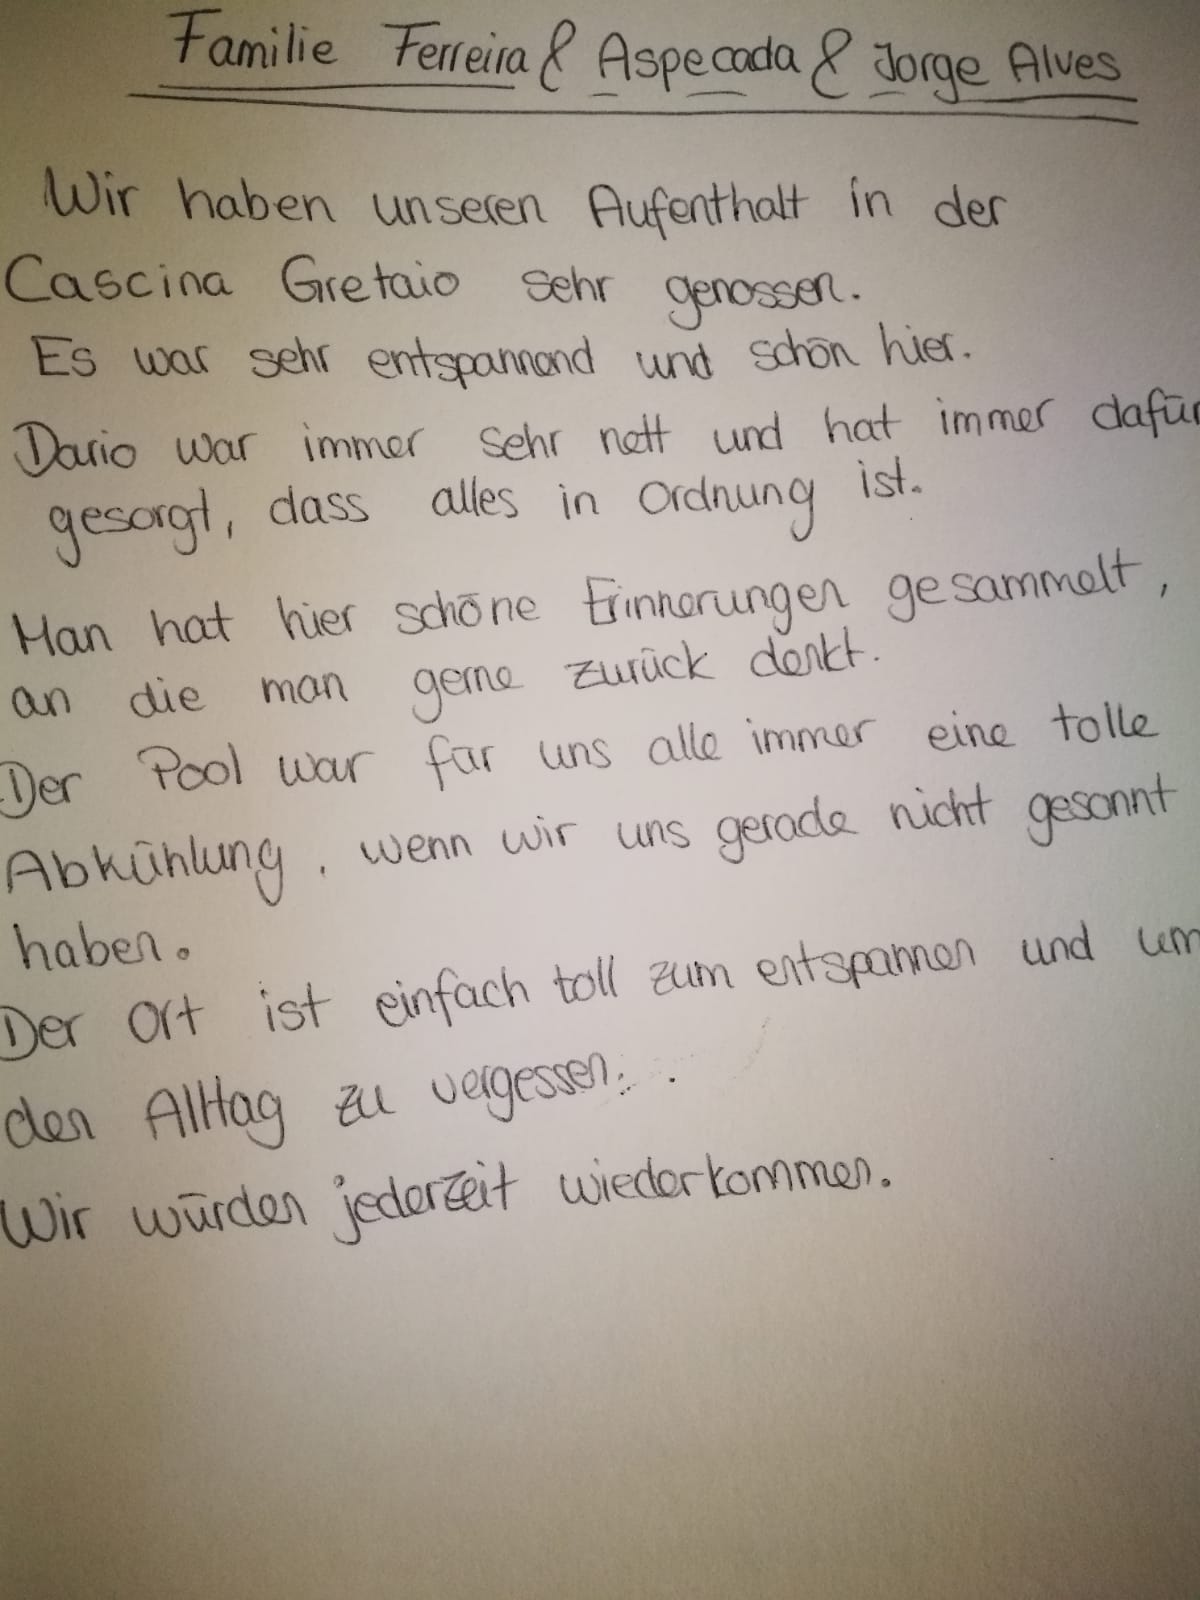 Familie Ferreira & Aspecada & Jorge Alves
Wir haben unseren Aufenthalt in der
Cascina Gretaio sehr genossen.
Es war sehr entspannend und schön hier.
Dario war immer sehr nett und hat immer dafür
gesorgt, dass alles in Ordnung ist.
Man hat hier schöne Erinnerungen gesammelt,
an die man gerne zurück denkt.
Der Pool war für uns alle immer eine tolle
Abkühlung, wenn wir uns gerade nicht gesonnt
haben.
Der Ort ist einfach toll zum entspannen und um
den Alltag zu vergessen.
Wir würden jederzeit wiederkommen.